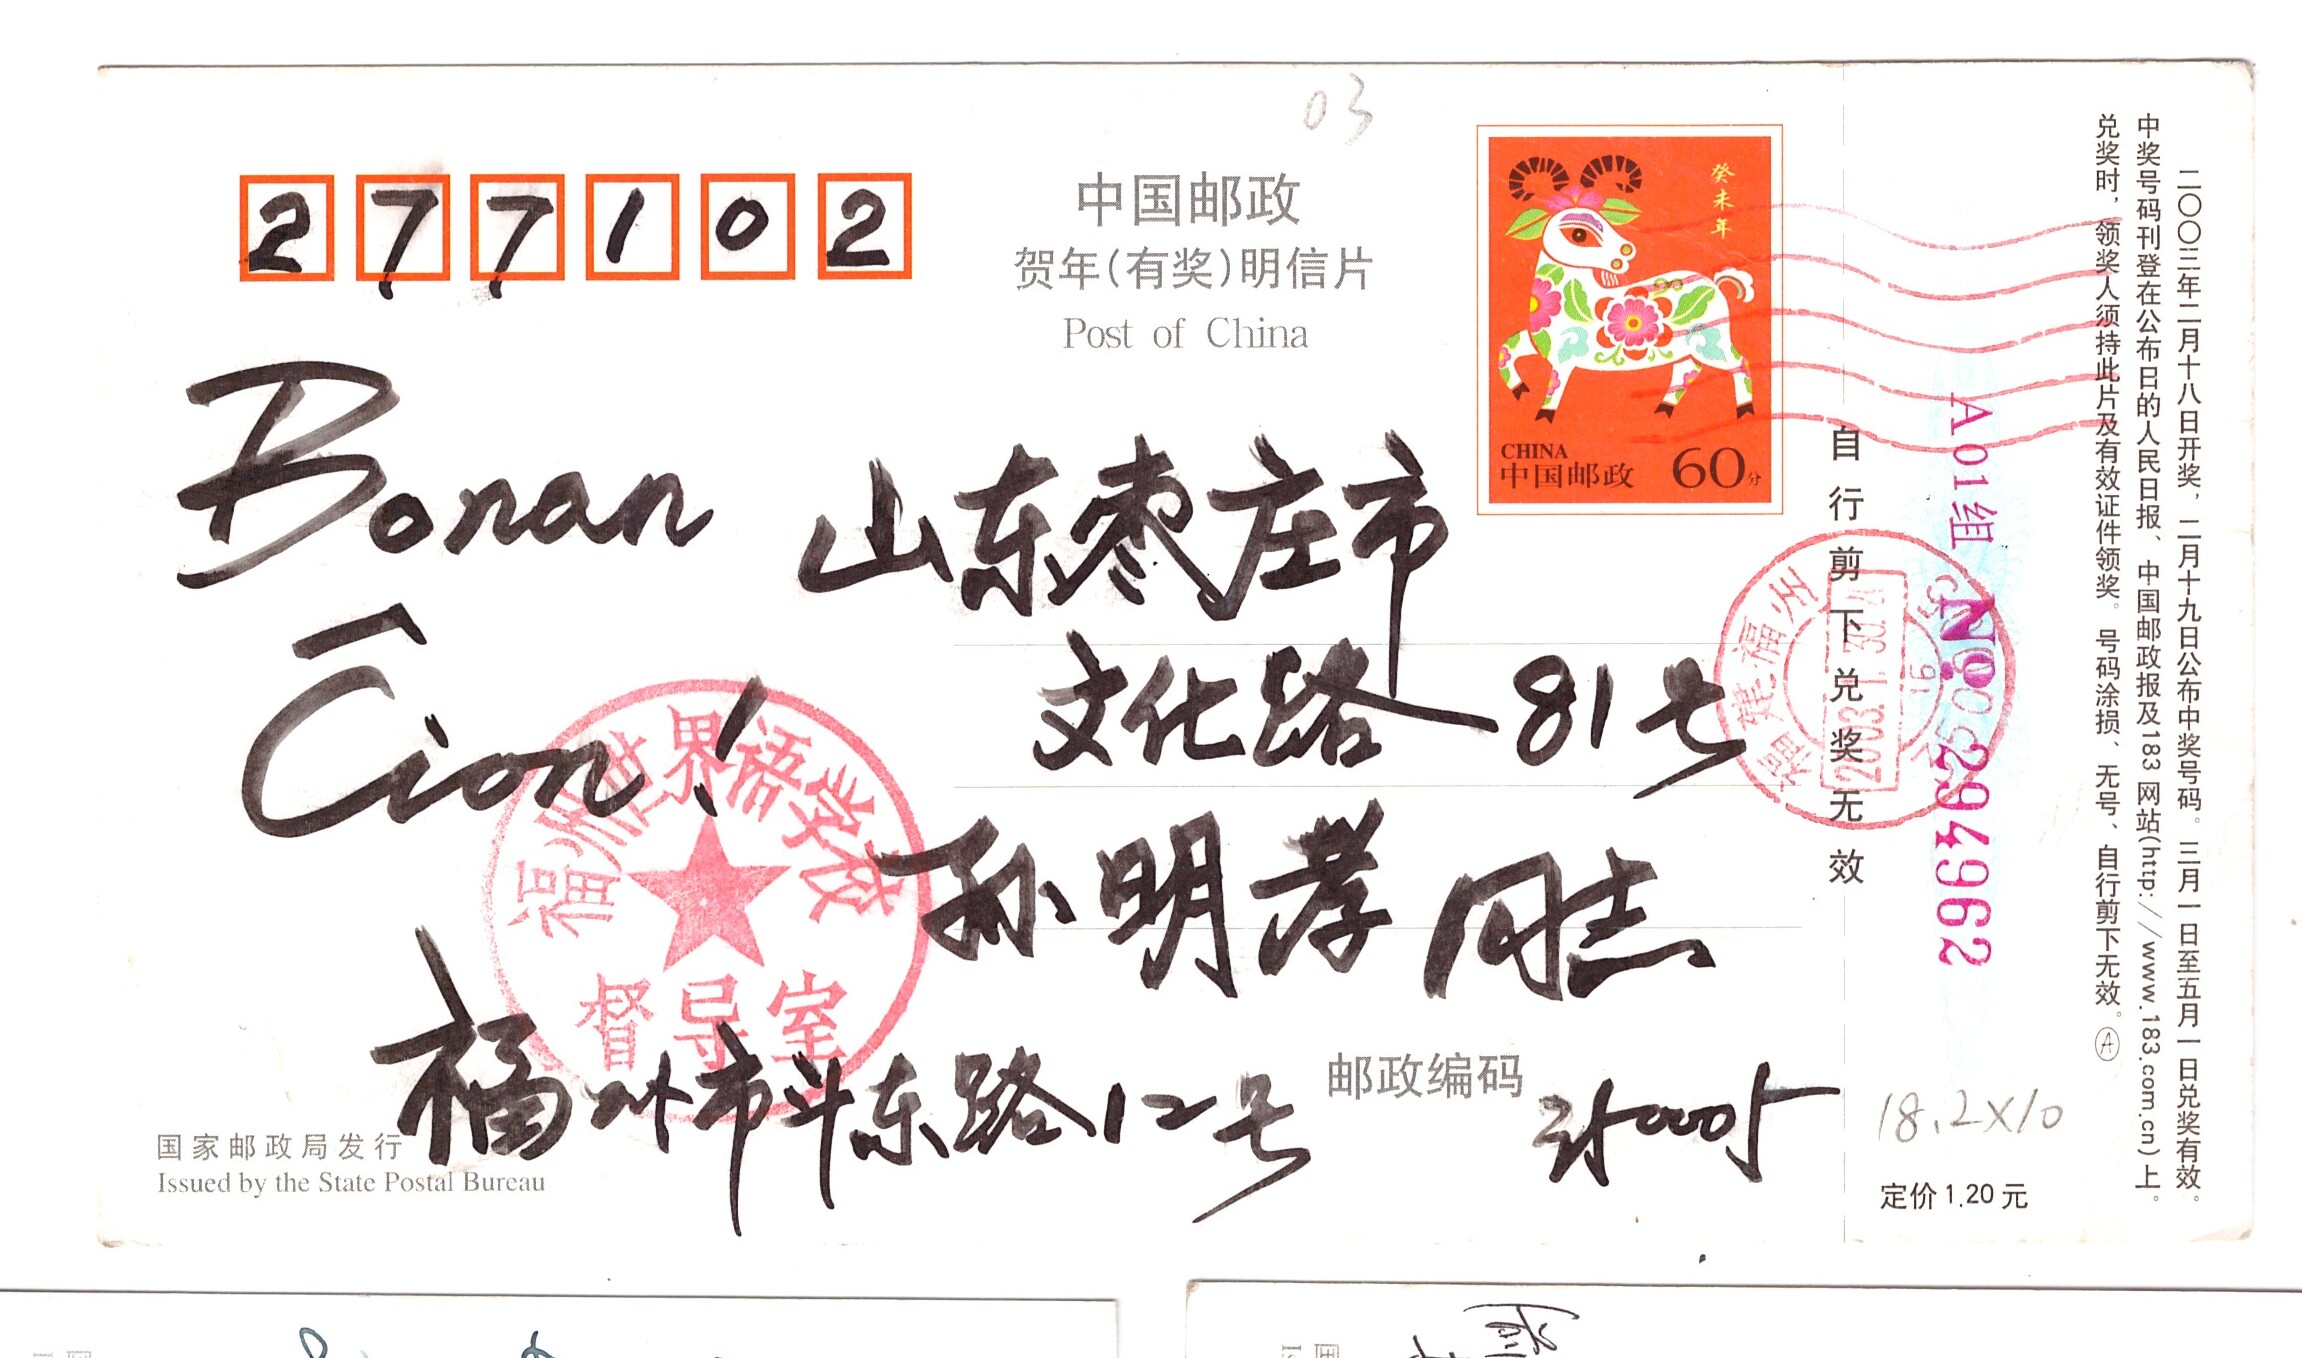 03
277102
中国邮政
贺年(有奖)明信片
Post of China
癸未年
CHINA
中国邮政 60分
Bonan
Ĉion!
山东枣庄市
文化路81号
孙明孝 同志
福州世界语学校
督导室
福州市斗东路12号
邮政编码 350005
国家邮政局发行
Issued by the State Postal Bureau
自行剪下兑奖无效
福建福州
2003.1.30.
16
A01组
No 294962
18.2×10
定价 1.20 元
二〇〇三年二月十八日开奖，二月十九日公布中奖号码。三月一日至五月一日兑奖有效。
中奖号码刊登在公布日的人民日报、中国邮政报及183网站(http://www.183.com.cn)上。
兑奖时，领奖人须持此片及有效证件领奖。号码涂损、无号、自行剪下无效。Ⓐ